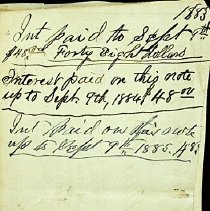 1883
Int paid to Sept 9th
$48.00 Forty Eight Dollars
Interest paid on this note
up to Sept. 9th, 1884 $48.00
Int Paid on this note
up to Sept 9th 1885. $48